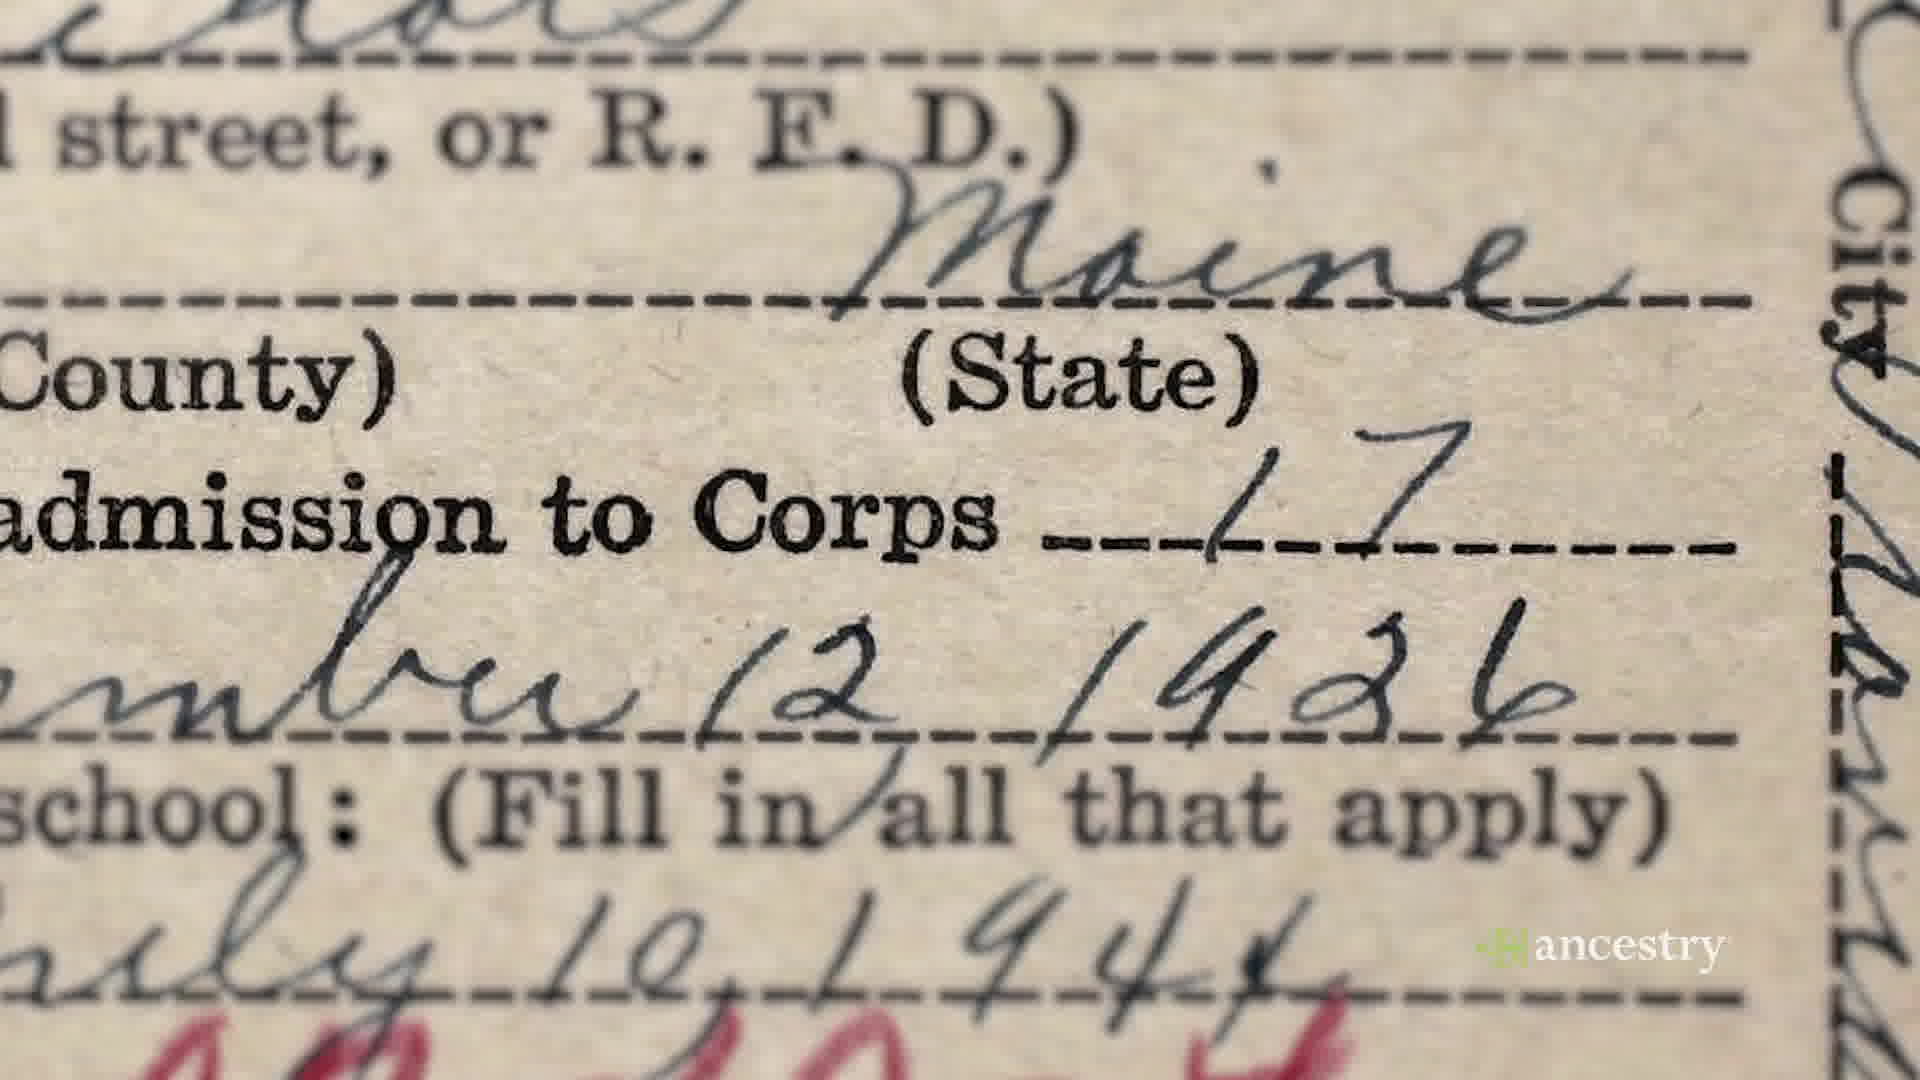 street, or R. F. D.)
Maine
County) (State)
admission to Corps 17
ember 12 1926
school: (Fill in all that apply)
July 10, 1944
ancestry
City